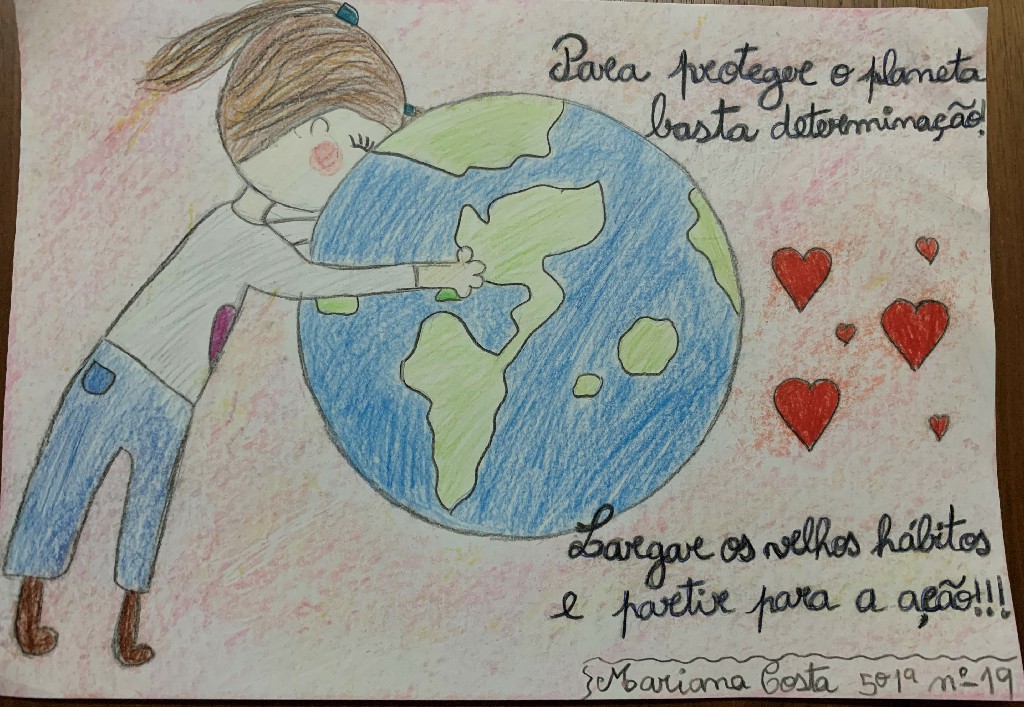 Para proteger o planeta
basta determinação!
Largar os velhos hábitos
e partir para a ação!!!
Mariana Costa 5º1ª nº-19